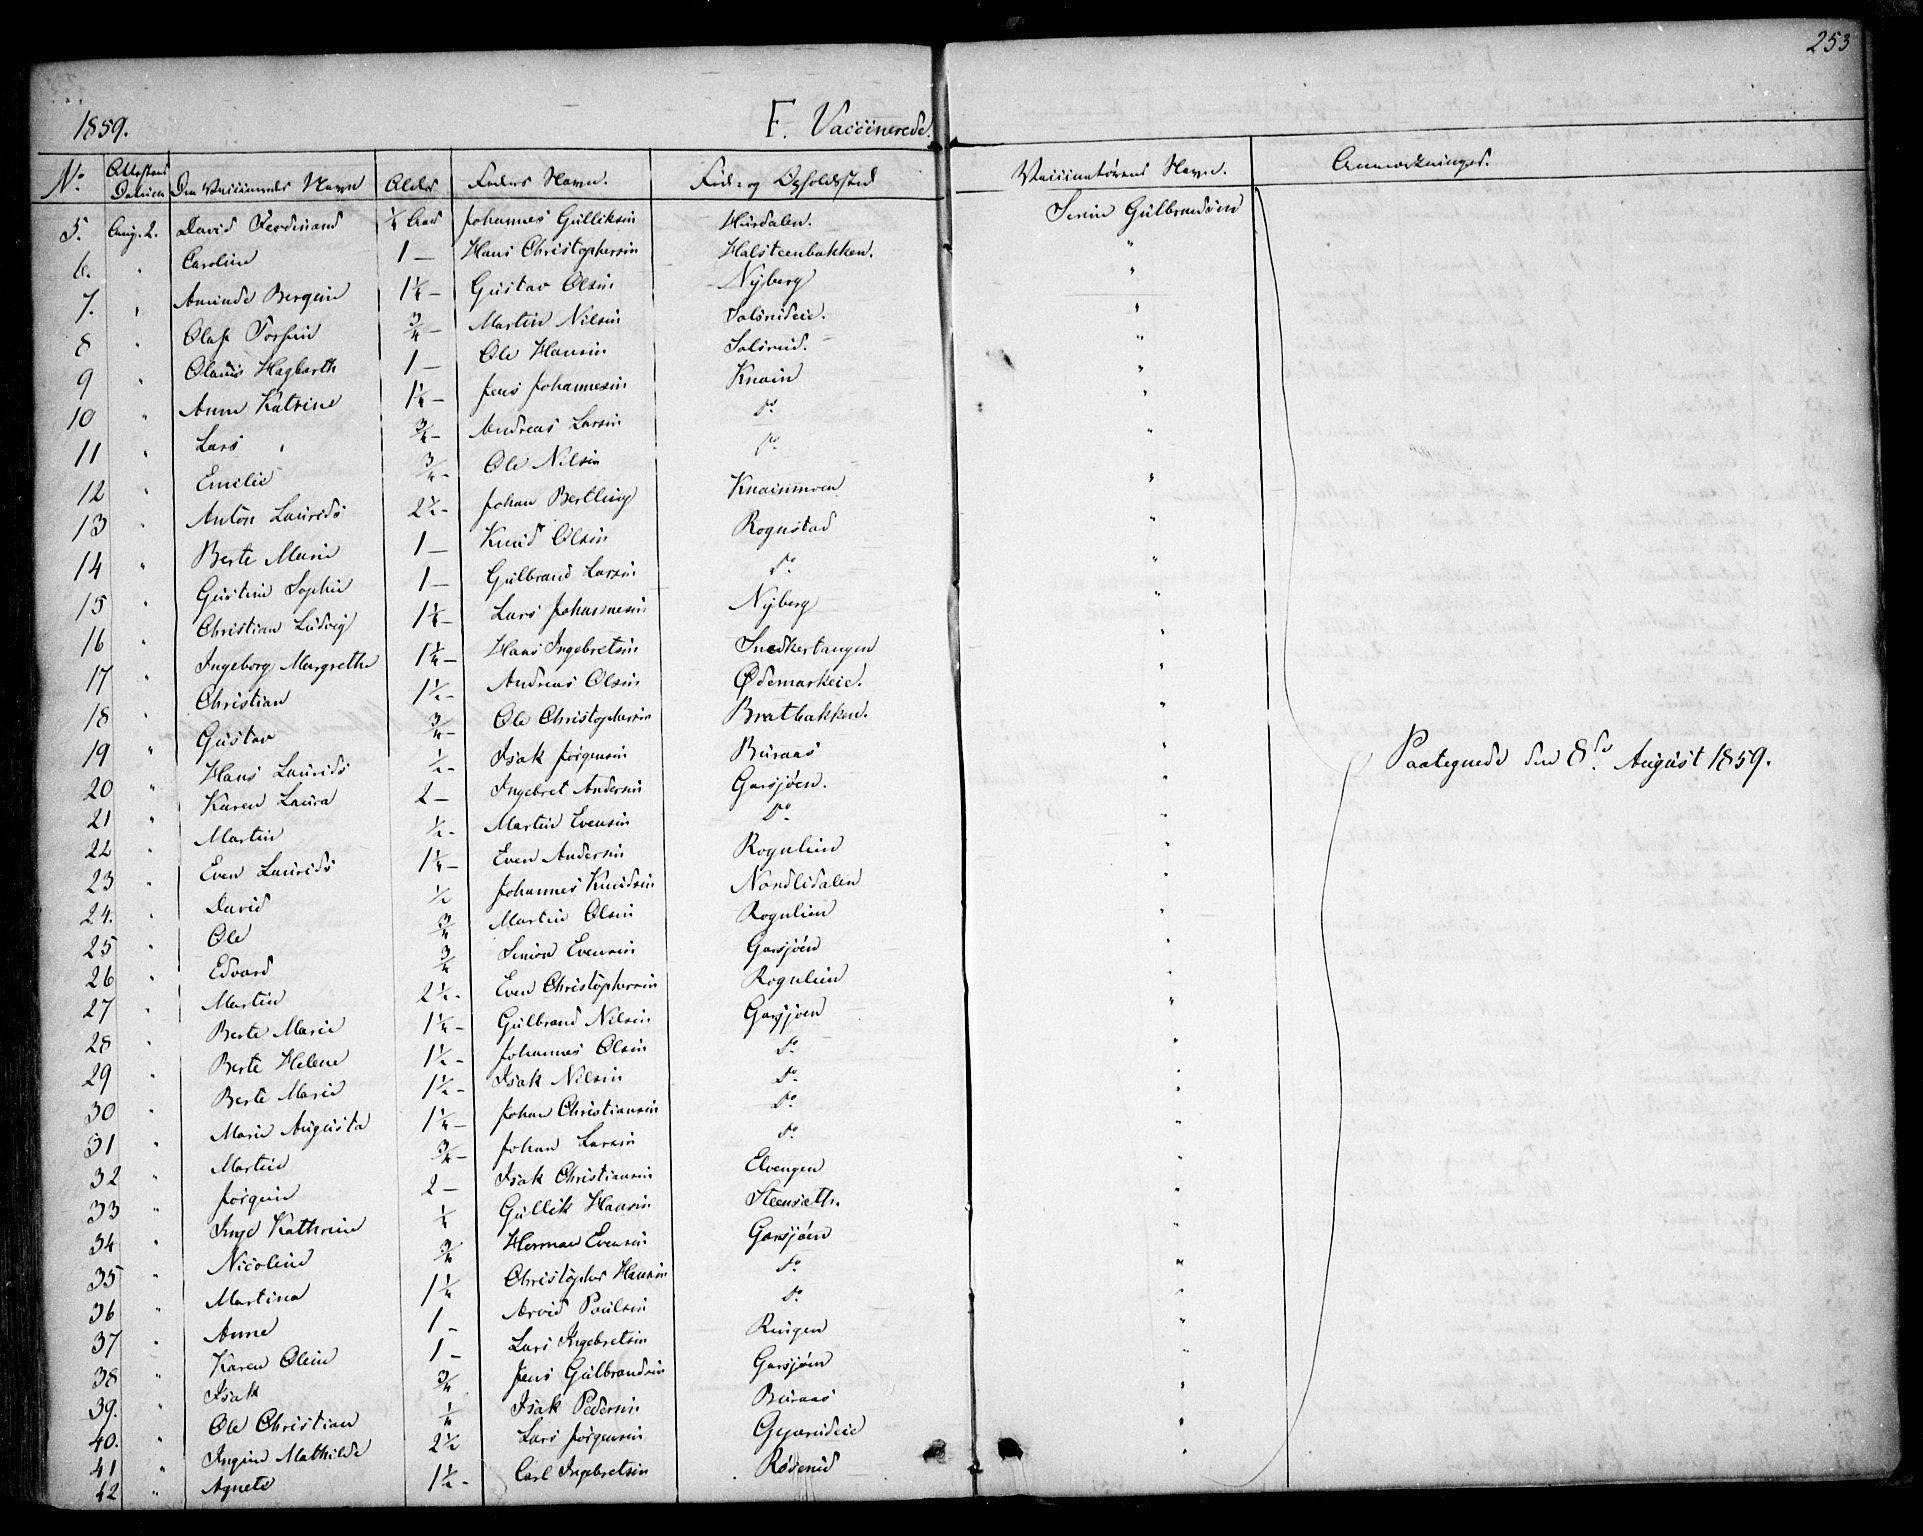 253
1859. F. Vaccinerede.
No. Attestens Datum Den Vaccineredes Navn Alder Faders Navn. Føde- og Opholdssted Vaccinatørens Navn. Anmærkninger.
5. Aug. 2. David Ferdinand ¼ Aar Johannes Gulliksen Hurdalen. Gulbrandsen
6. " Caroline 1 — Hans Christophersen Halsteenbakken. "
7. " Bergine 1¼ — Gustav Olsen Nyberg "
8 " Olaf 3/4 — Martin Nilsen "
9 " Hagbarth 1 — Ole Hansen "
10 " Anne Katrine 1¼ — Jens Johannesen Knain "
11 " Lars 3/4 — Andreas Larsen do "
12 " Emilie 3/4 — Ole Nilsen do "
13 " Anton Laurids 2½ — Johan Bertling Knainmoen "
14 " Berte Marie 1 — Knud Olsen Rognstad "
15 " Gustine Sophie 1 — Gulbrand Larsen do "
16 " Christian Ludvig 1¼ — Lars Johannesen Nyberg "
17 " Ingeborg Margrethe 1¼ — Hans Ingebretsen Snedkertangen "
18 " Christian 1½ — Andreas Olsen Ødemarkeie. "
19 " Gustav 3/4 — Ole Christophersen Bratbakken. "
20 " Hans Laurids ½ — Isak Jørgensen Buraas "
21 " Karen Laura 2 — Ingebret Andersen Garsjøen. "
22 " Martin ½ — Martin Evensen do "
23 " Even Laurids 1¼ — Even Andersen Rognlien "
24. " David ½ Johannes Knudsen Nordlidalen "
25 " Ole 3/4 Martin Olsen Rognlien "
26 " Edvard 3/4 Simon Evensen Garsjøen "
27 " Martin 2½ — Even Christophersen Rognlien "
28 " Berte Marie 1¼ — Gulbrand Nilsen Garsjøen "
29 " Berte Helene 1½ — Johannes Olsen do "
30 " Berte Marie 1½ — Isak Nilsen do "
31 " Marie Augusta 1¼ — Johan Christiansen do "
32 " Martin 3/4 — Johan Larsen do "
33 " Jørgine 2 — Isak Christiansen Elvengen "
34 " Inge Kathrine ¼ Gullik Hansen Steensæth. "
35 " Nicoline 3/4 Herman Evensen Garsjøen "
36 " Martina 1¼ Christopher Hansen do "
37 " Anne 1 — Arvid Paulsen do "
38 " Karen Oline 1 — Lars Ingebretsen "
39. " Isak 3/4 Jens Gulbrandsen Garsjøen "
40. " Ole Christian ¼ Isak Pedersen Buraas "
41 " Mathilde 2½ Lars Jørgensen "
42 " Agnete 1½ — Carl Ingebretsen
Paategnede den 8de August 1859.